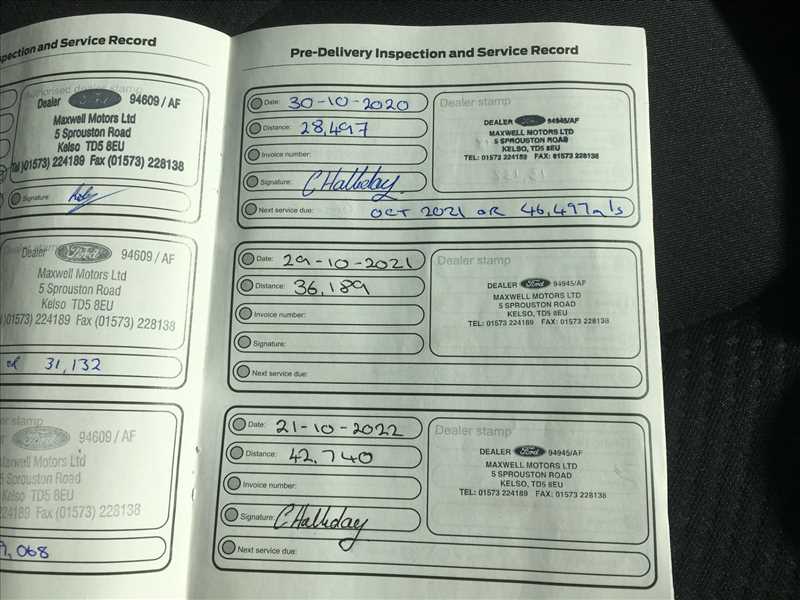 pection and Service Record
Authorised dealer stamp
Dealer Ford 94609 / AF
Maxwell Motors Ltd
5 Sprouston Road
Kelso TD5 8EU
Tel (01573) 224189 Fax (01573) 228138
Signature:
Dealer stamp
Dealer Ford 94609 / AF
Maxwell Motors Ltd
5 Sprouston Road
Kelso TD5 8EU
(01573) 224189 Fax (01573) 228138
or 31,132
Dealer stamp
Ford 94609 / AF
Maxwell Motors Ltd
5 Sprouston Road
Kelso TD5 8EU
224189 Fax (01573) 228138
,068
Pre-Delivery Inspection and Service Record
Date: 30-10-2020
Distance: 28,497
Invoice number:
Signature: C Halliday
Next service due: OCT 2021 OR 46,497 mls
Dealer stamp
DEALER Ford 94945/AF
MAXWELL MOTORS LTD
5 SPROUSTON ROAD
KELSO, TD5 8EU
TEL: 01573 224189 FAX: 01573 228138
Date: 29-10-2021
Distance: 36,189
Invoice number:
Signature:
Next service due:
Dealer stamp
DEALER Ford 94945/AF
MAXWELL MOTORS LTD
5 SPROUSTON ROAD
KELSO, TD5 8EU
TEL: 01573 224189 FAX: 01573 228138
Date: 21-10-2022
Distance: 42,740
Invoice number:
Signature: C Halliday
Next service due:
Dealer stamp
DEALER Ford 94945/AF
MAXWELL MOTORS LTD
5 SPROUSTON ROAD
KELSO, TD5 8EU
TEL: 01573 224189 FAX: 01573 228138